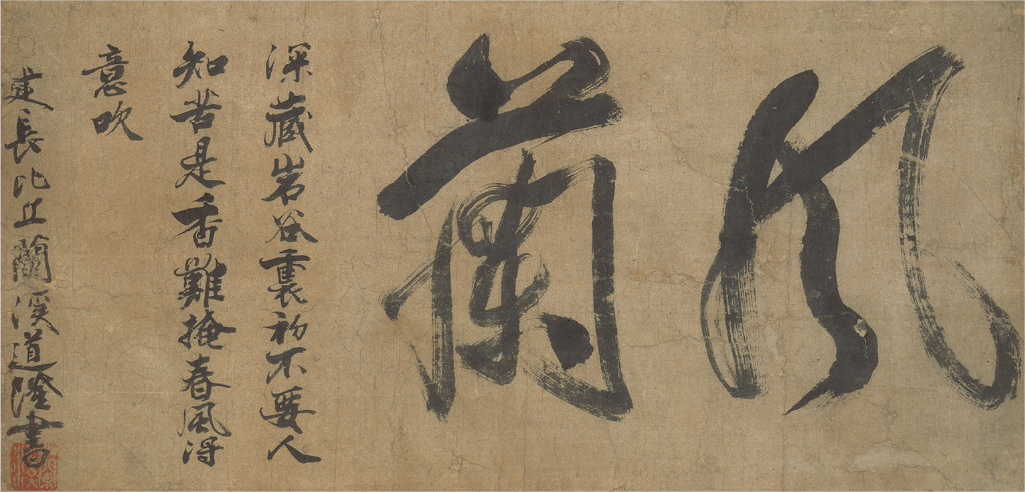 風蘭
深藏岩谷裏初不要人
知苦是香難掩春風得
意吹
建長比丘蘭溪道隆書
蘭溪